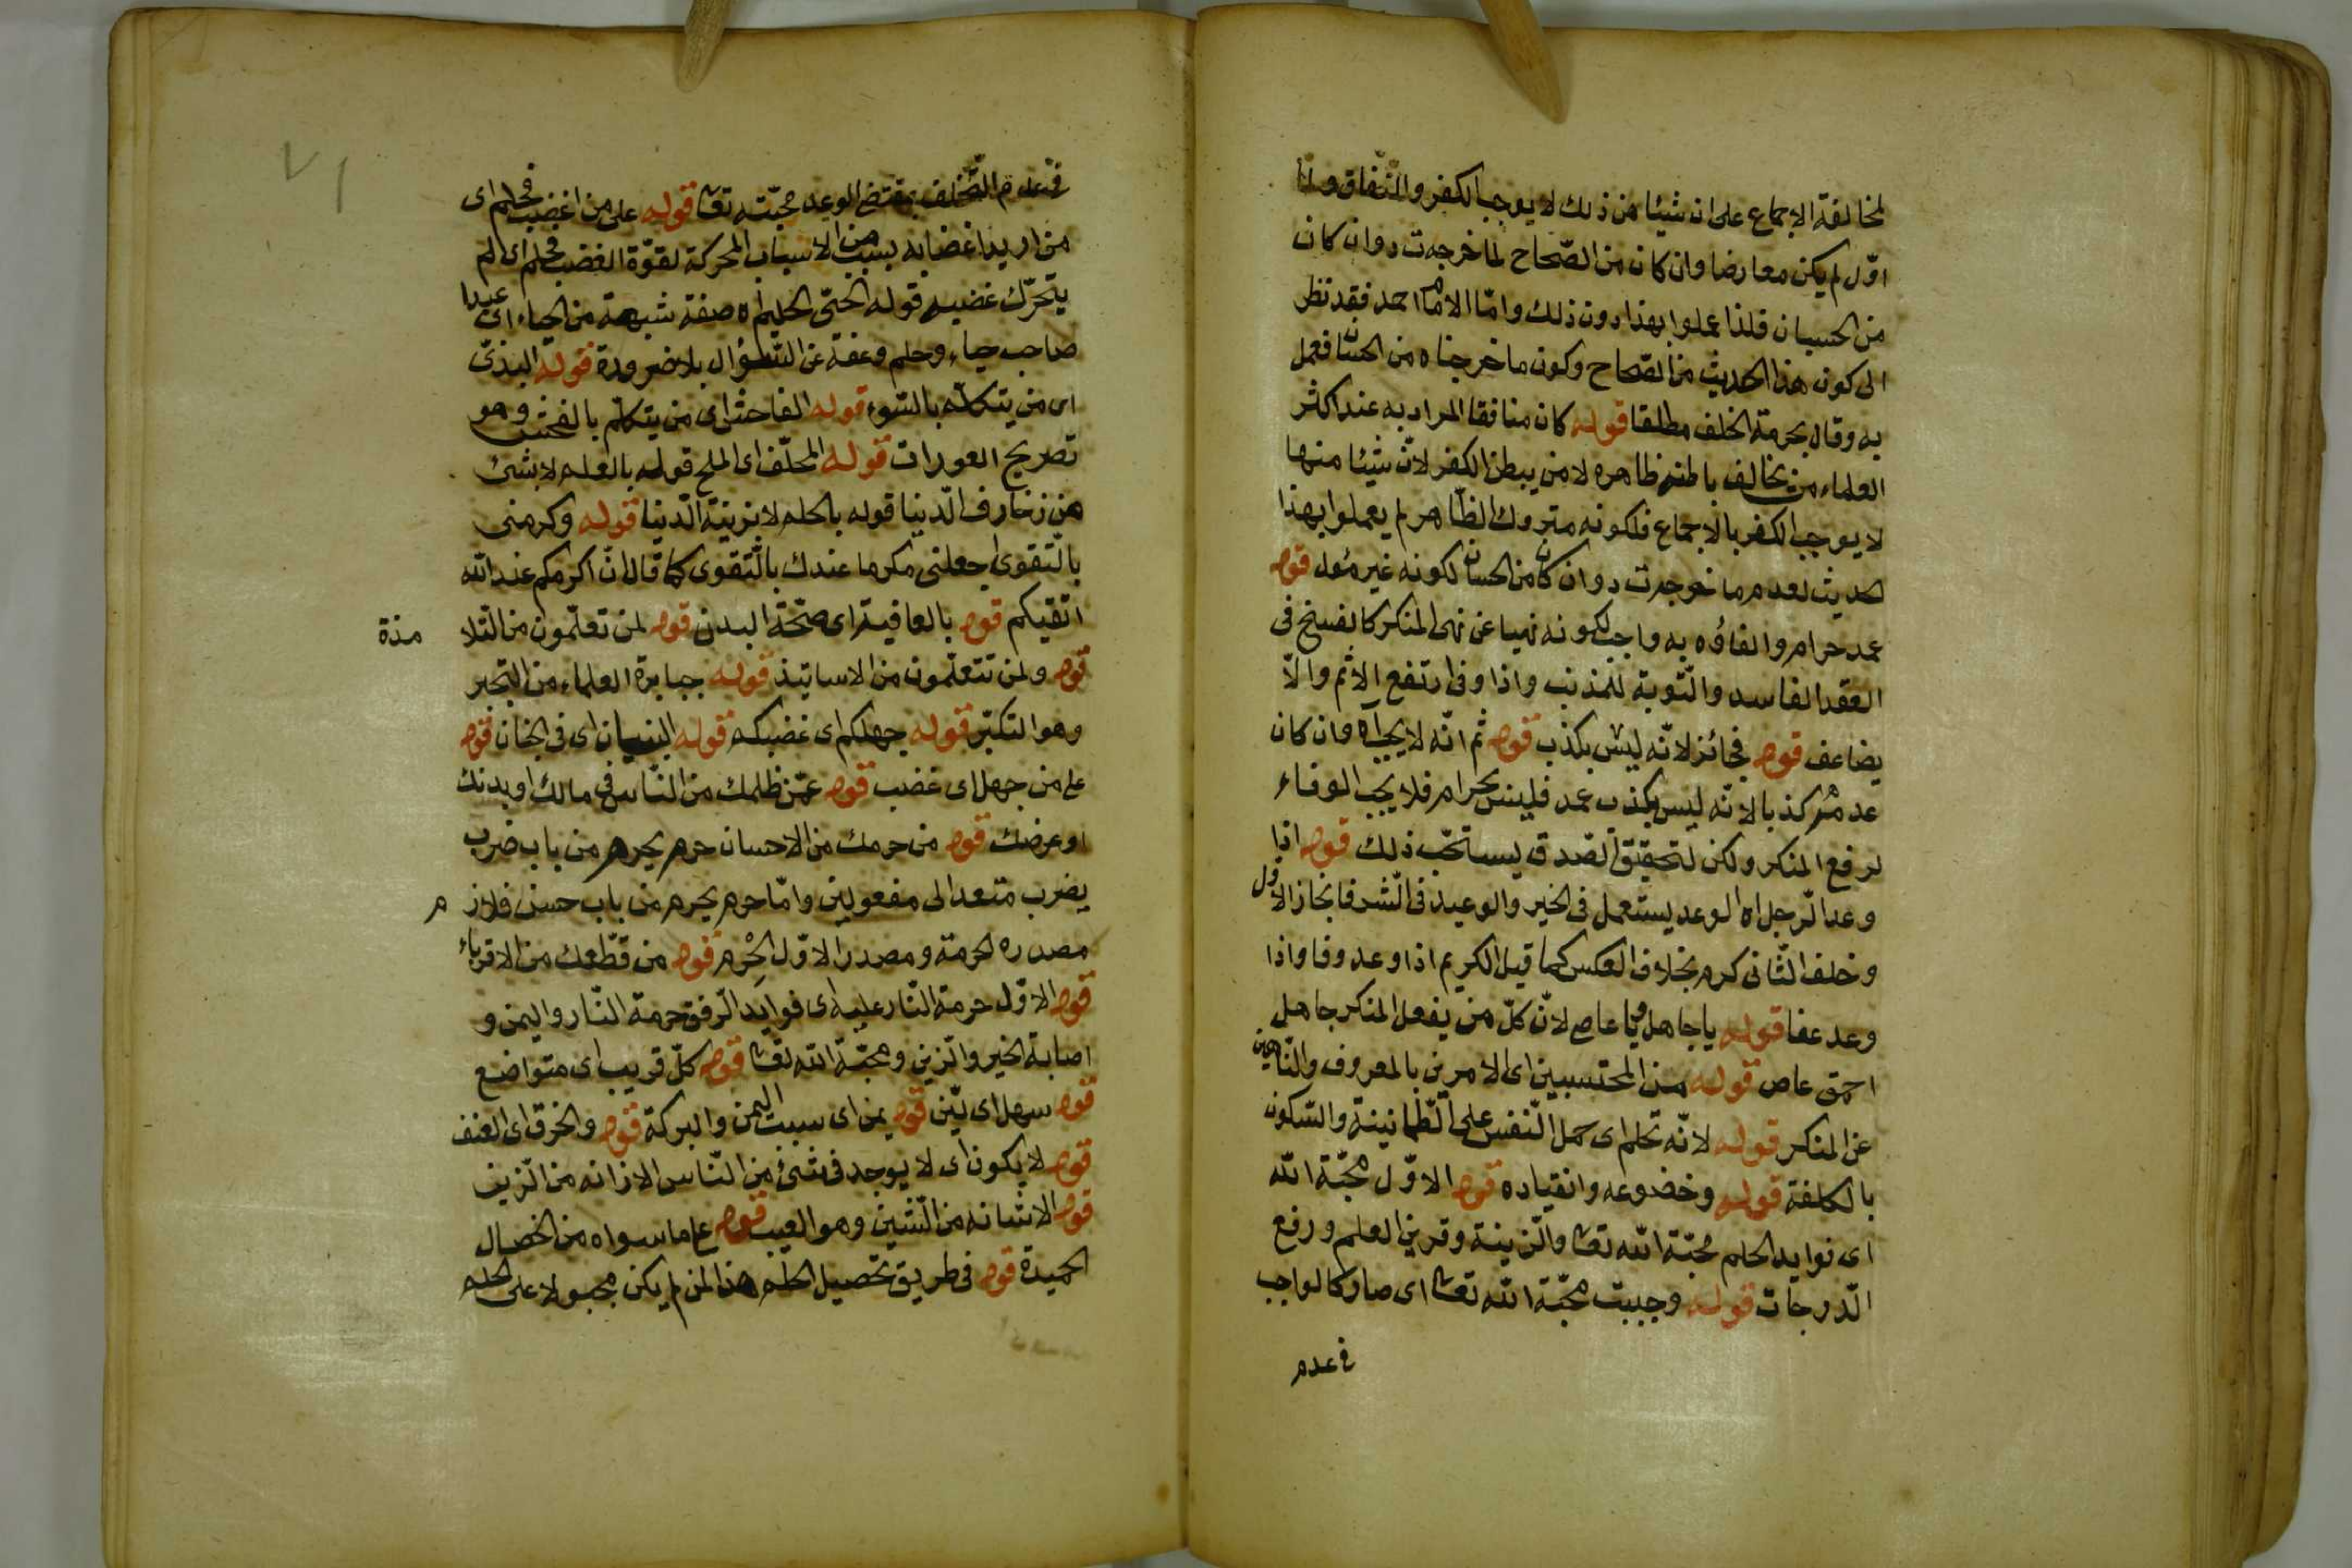 لمخالفة الاجماع على ان شيئا من ذلك لا يوجب الكفر والنفاق ولنا
اوّل لم يكن معارضا وان كان من الصّحاح لما خرجه ت د وان كان
من الحسان فلذا عملوا بهذا دون ذلك وامّا الامام احمد فقد نظر
الى كون هذا الحديث من الصّحاح وكون ما خرجناه من الحسان فعمل
به وقال بحرمة الخلف مطلقا قوله كان منافقا المراد به عند اكثر
العلماء من يخالف باطنه ظاهره لا من يبطن الكفر لانّ شيئا منها
لا يوجب الكفر بالاجماع فلكونه متروك الظّاهر لم يعملوا بهذا
الحديث لعدم ما خرجه ت د وان كان من الحسان لكونه غير مئول قوله
عمد حرام والفاؤه به واجب لكونه نهيا عن نهى المنكر كالفسخ فى
العقد الفاسد والتّوبة للمذنب واذا وفى ارتفع الاثم والّا
يضاعف قوله فجائز لانّه ليس بكذب قوله ثم انّه لا يجب اه وان كان
عدمه كذبا لانّه ليس بكذب عمد فليس بحرام فلا يجب الوفاء
لرفع المنكر ولكن لتحقيق الصّدق يستحبّ ذلك قوله اذا
وعد الرّجل اه الوعد يستعمل فى الخير والوعيد فى الشّر فانجاز الاول
وخلف الثّانى كرم بخلاف العكس كما قيل الكريم اذا وعد وفا واذا
وعد عفا قوله يا جاهل ويا عاص لانّ كلّ من يفعل المنكر جاهل
احمق عاص قوله من المحتسبين اى الامرين بالمعروف والنّاهين
عن المنكر قوله لانّه تحلم اى حمل النّفس على الطّمانينة والسّكون
بالكلفة قوله وخضوعه وانقياده قوله الاوّل محبّة اللّه
اى فوايد الحلم محبّة اللّه تعا والزّينة وقرين العلم ورفع
الدّرجات قوله وجبت محبّة اللّه تعا اى صار كالواجب
فى عدم
٧١
فى عدم التّخلف بمقتضى الوعد محبّته تعا قوله على من اغضب فحلم اى
من اريد اغضابه بسبب من الاسباب المحركة لقوّة الغضب فحلم اى لم
يتحرّك غضبه قوله الحيّى الحليم اه صفة شبهة من الحياء اى عبدا
صاحب حياء وحلم وعفة عن السّؤال بلا ضرورة قوله البذىّ
اى من يتكلّم بالسّوء قوله الفاحش اى من يتكلّم بالفحش وهو
تصريح العورات قوله المحلّف اى الملح قوله بالعلم لا بشئ
من زخارف الدّنيا قوله بالحلم لا بزينة الدّنيا قوله وكرمنى
بالتّقوى اجعلنى مكرما عندك بالتّقوى كما قال انّ اكرمكم عند اللّه
اتقيكم قوله بالعافية اى صحّة البدن قوله لمن تعلّمون من التّلا
مذة
قوله ولمن تتعلّمون من الاساتيذ قوله جبابرة العلماء من التّجبر
وهو التكبّر قوله جهلكم اى غضبكم قوله البنيان اى فى الجنان قوله
على من جهل اى غضب قوله عمّن ظلمك من النّاس فى مالك او بدنك
او عرضك قوله من حرمك من الاحسان حرم يحرم من باب ضرب
يضرب متعد الى مفعولين وامّا حرم يحرم من باب حسن فلاز م
مصدره الحرمة ومصدر الاوّل الحِرْم قوله من قطّعك من الاقرباء
قوله الاوّل حرمة النّار عليه اى فوايد الرّفق حرمة النّار واليمن و
اصابة الخير والزّين ومحبّة اللّه تعا قوله كلّ قريب اى متواضع
قوله سهل اى ليّن قوله يمن اى سبب اليمن والبركة قوله والخرق اى العنف
قوله لا يكون اى لا يوجد فى شئ من النّاس الا زانه من الزّين
قوله الا شانه من الشّين وهو العيب قوله على ما سواه من الخصال
الحميدة قوله فى طريق تحصيل الحلم هذا لمن لم يكن مجبولا على الحلم